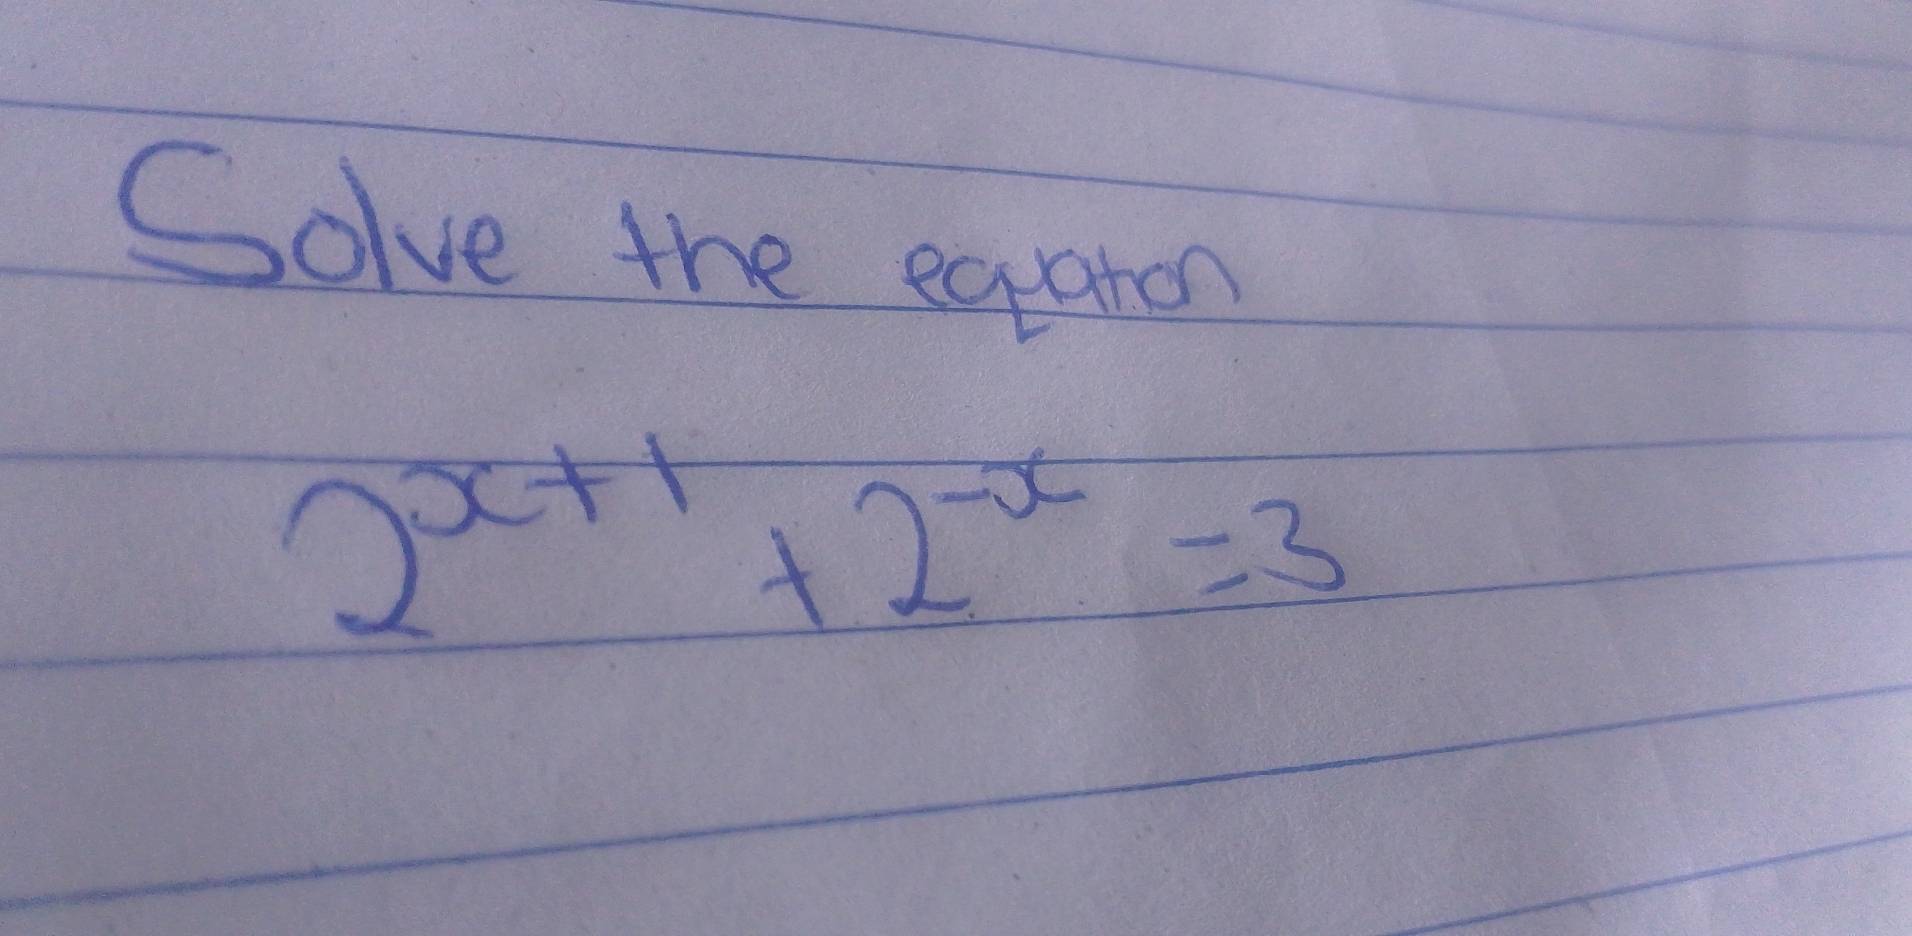 Solve the equation
2^{x+1} + 2^{-x} = 3